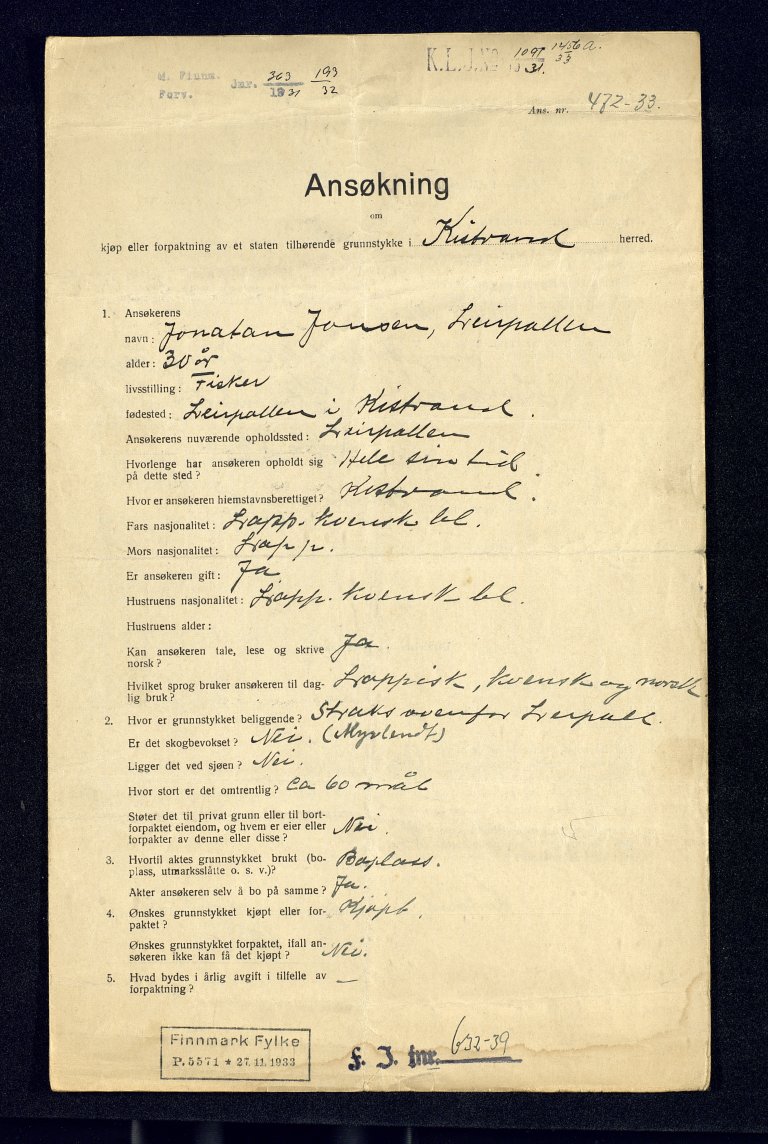 M. Finnm. Forv. Jnr. 303/1931 193/32
K.L.J.No 1091/31. 1456a./33
Ans. nr. 472-33.
Ansøkning
om
kjøp eller forpaktning av et staten tilhørende grunnstykke i Kistrand herred.
1. Ansøkerens
navn: Jonatan Jonsen, Leirpollen
alder: 30 år
livsstilling: Fisker
fødested: Leirpollen i Kistrand.
Ansøkerens nuværende opholdssted: Leirpollen
Hvorlenge har ansøkeren opholdt sig Hele sin tid
på dette sted?
Hvor er ansøkeren hiemstavnsberettiget? Kistrand.
Fars nasjonalitet: Lapp. kvensk bl.
Mors nasjonalitet: Lapp.
Er ansøkeren gift: Ja
Hustruens nasjonalitet: Lapp. kvensk bl.
Hustruens alder:
Kan ansøkeren tale, lese og skrive Ja.
norsk?
Hvilket sprog bruker ansøkeren til dag- Lappisk, kvensk og norsk.
lig bruk?
2. Hvor er grunnstykket beliggende? Straks ovenfor Leirpoll.
Er det skogbevokset? Nei. (Myrlendt)
Ligger det ved sjøen? Nei.
Hvor stort er det omtrentlig? ca 60 mål
Støter det til privat grunn eller til bort-
forpaktet eiendom, og hvem er eier eller Nei.
forpakter av denne eller disse?
3. Hvortil aktes grunnstykket brukt (bo- Boplass.
plass, utmarksslåtte o. s. v.)?
Akter ansøkeren selv å bo på samme? Ja.
4. Ønskes grunnstykket kjøpt eller for- Kjøpt.
paktet?
Ønskes grunnstykket forpaktet, ifall an-
søkeren ikke kan få det kjøpt? Nei.
5. Hvad bydes i årlig avgift i tilfelle av —
forpaktning?
Finnmark Fylke
P. 5571 * 27.11.1933
F. J. jnr. 632-39